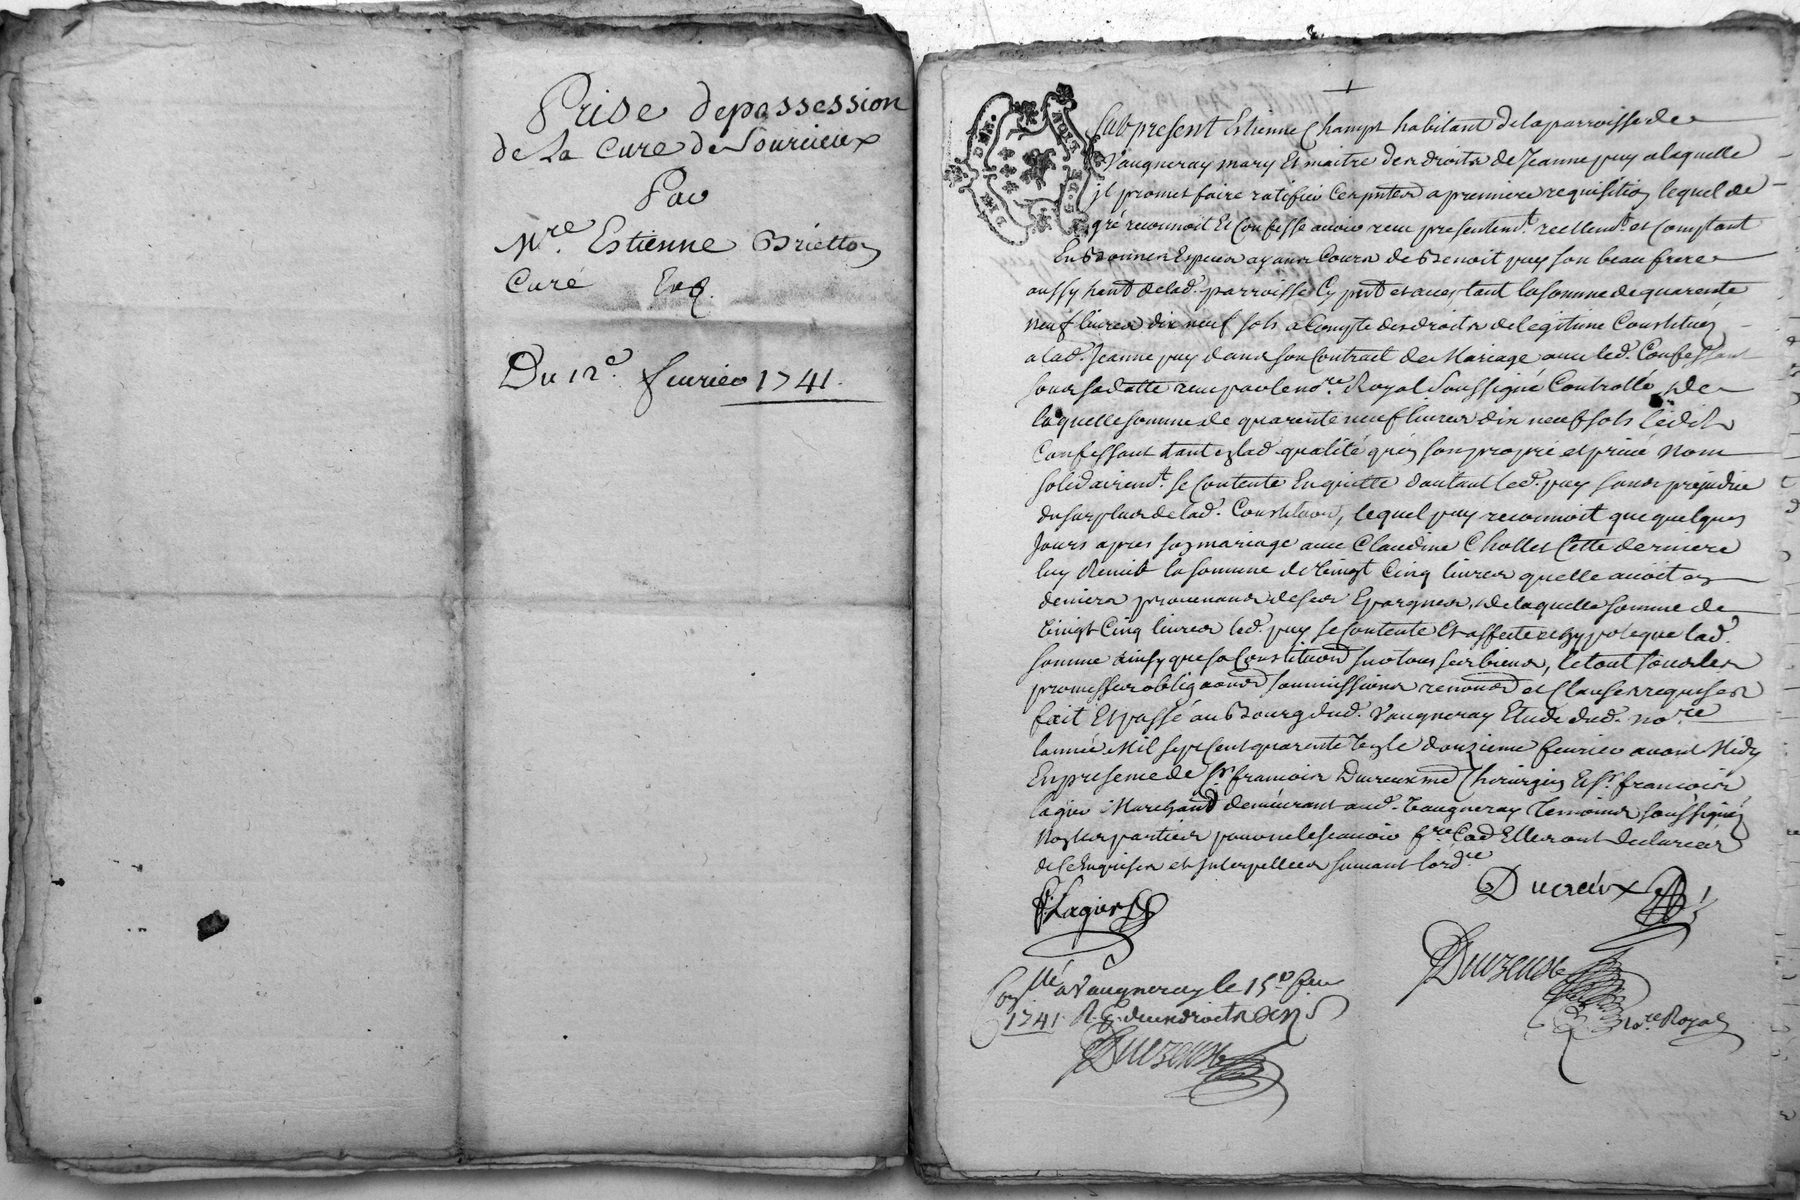 Prise depossession
de La Cure de Sourcieux
Par
Mre. Estienne Brietton
Curé
Du 12e. feurier 1741.
fut present Estienne Champt habitant delaparroisse de
Vaugneray mary et maitre des droits de Jeanne puy a laquelle
jl promet faire ratifier cespntes a premiere requisition lequel de
gré reconnoit Et Confesse auoir receu presentemt. reellemt. et Comptant
En Bonnes Especes ayans Cours de Benoit puy son beau frere
aussy hant delad. parroisse Cy pnt et acceptant la somme de quarente
neuf liures dix neuf sols a Compte des droits de legitime Constitués
a lad. Jeanne puy dans son Contract de Mariage auec led. Confessant
sous sa datte receu par le nore. Royal soussigné Controllé, de
laquelle somme de quarente neuf liures dix neuf sols ledit
Confessant tant en lad. qualité qu'en son propre et priué nom
solidairemt. se Contente En quitte d'autant led. puy sans prejudice
du surplus de lad. Constituon, lequel puy reconnoit que quelques
Jours apres son mariage auec Claudine Chollet Cette derniere
luy Remit la somme de Vingt Cinq liures quelle auoit en
deniers prouenans de ses Epargnes, de laquelle somme de
Vingt Cinq liures led. puy se Contente Et affecte et hypoteque lad.
somme ainsy que sa Constitution sur tous ses biens, le tout sous les
promesses obligaons soumissions renonons et Clauses requises
fait Et passé au Bourg dud. Vaugneray Etude dud. nore
l'année Mil sept Cent quarente Un le douzieme feurier auant Midy
En presence de sr. francois Ducreux me Chirurgien Et sr. francois
Lagier Marchand demeurant aud. Vaugneray temoins soussignés
Non les parties pour ne le scauoir fre. Co'd Elles ont declarées
de ce Enquises et Interpellees suiuant lordre
f. Lagier
Ducreux
Duvzeuste
nore Royal
Conllé a Vaugneray le 15e feu
1741 R. droits